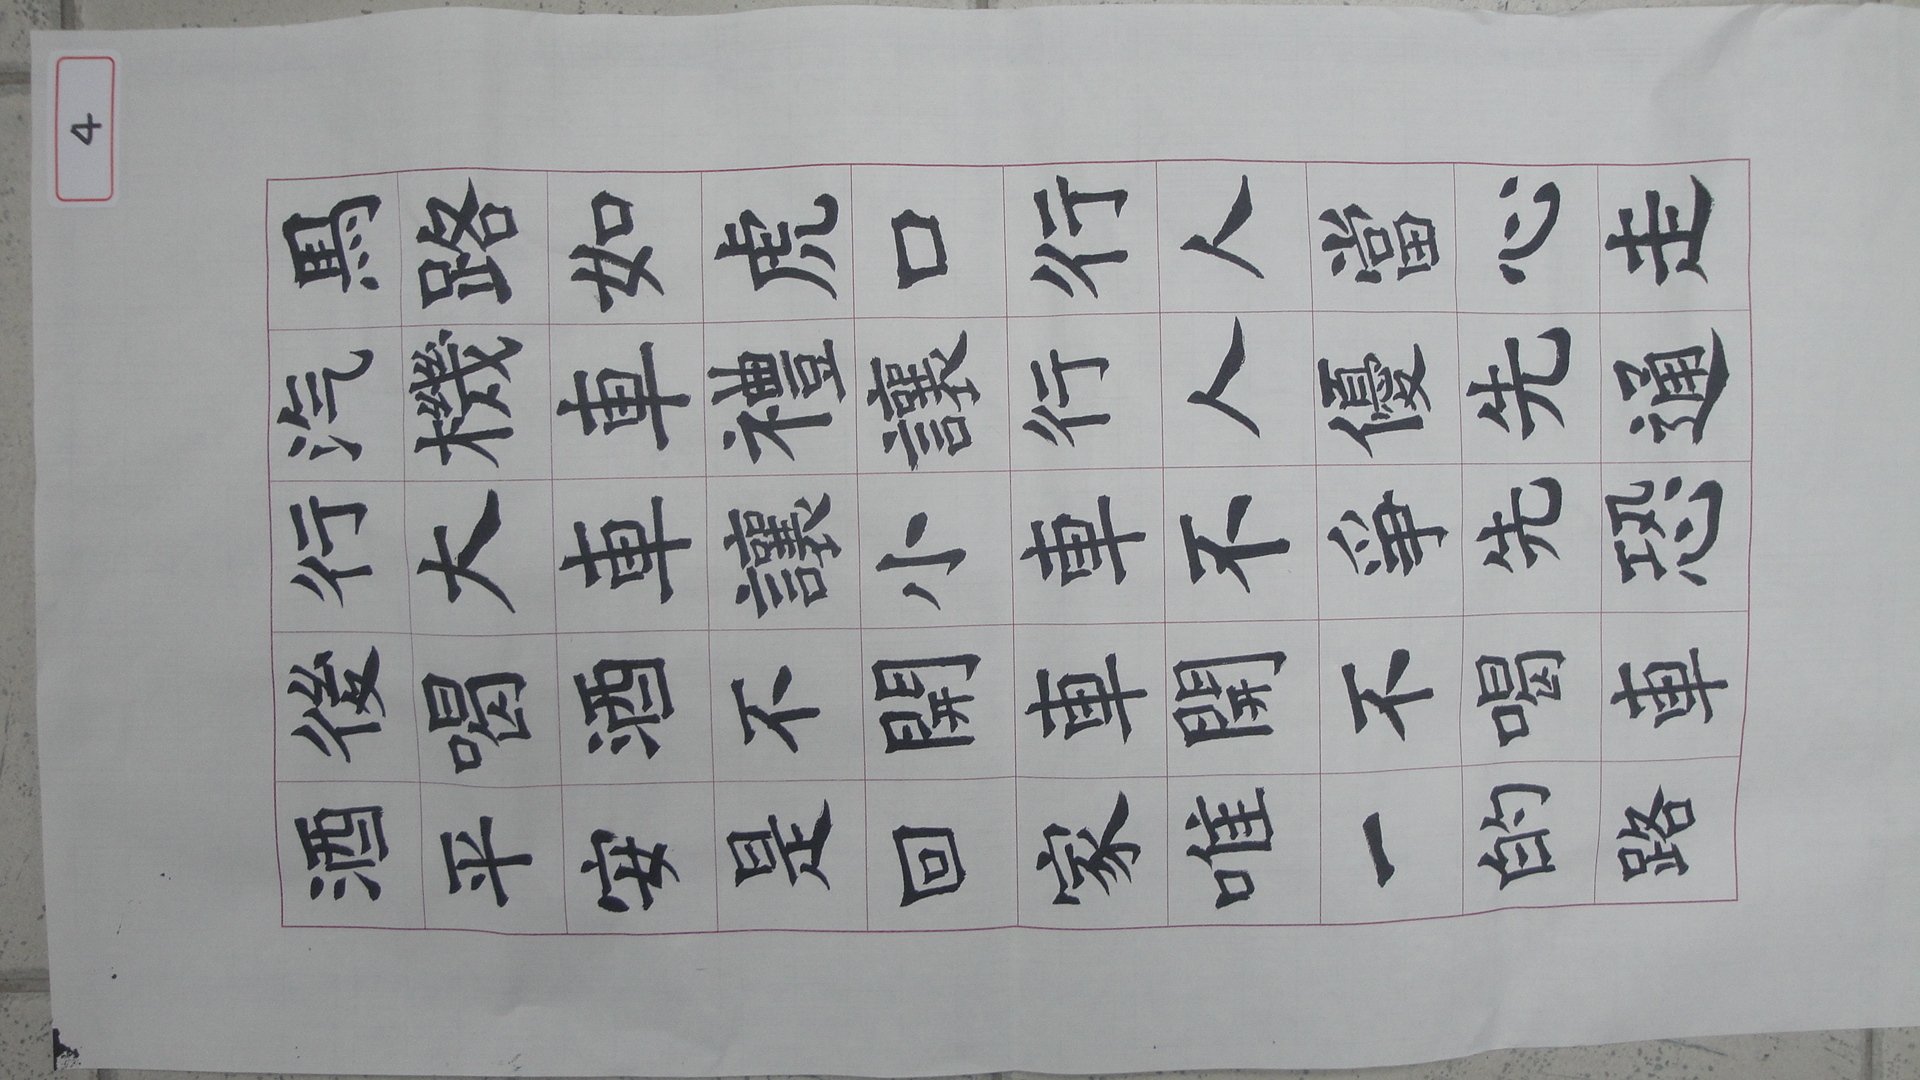 4
馬路如虎口行人當心走
汽機車禮讓行人優先通
行大車讓小車不爭先恐
後喝酒不開車開不喝車
酒平安是回家唯一的路